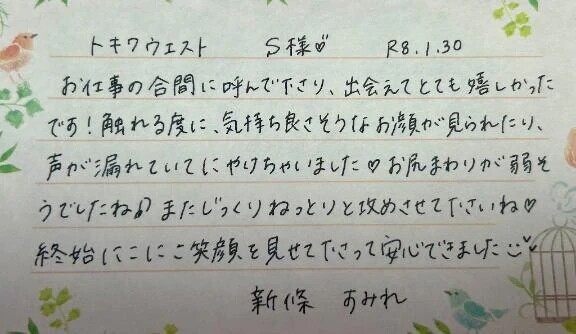 トキワウエスト S様♡ R8.1.30
お仕事の合間に呼んで下さり、出会えてとても嬉しかった
です！触れる度に、気持ち良さそうなお顔が見られたり、
声が漏れていてにやけちゃいました♡お尻まわりが弱そ
うでしたね♪またじっくりねっとりと攻めさせて下さいね♡
終始にこにこ笑顔を見せて下さって安心できました
新條 すみれ